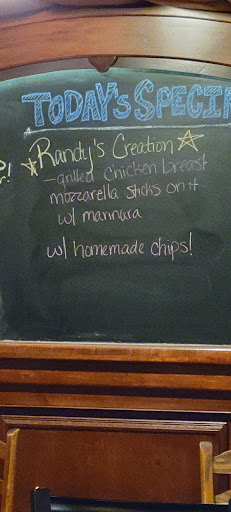 TODAY'S SPECIA
Randy's Creation
- grilled chicken breast
mozzarella sticks on it
w/ marinara
w/ homemade chips!